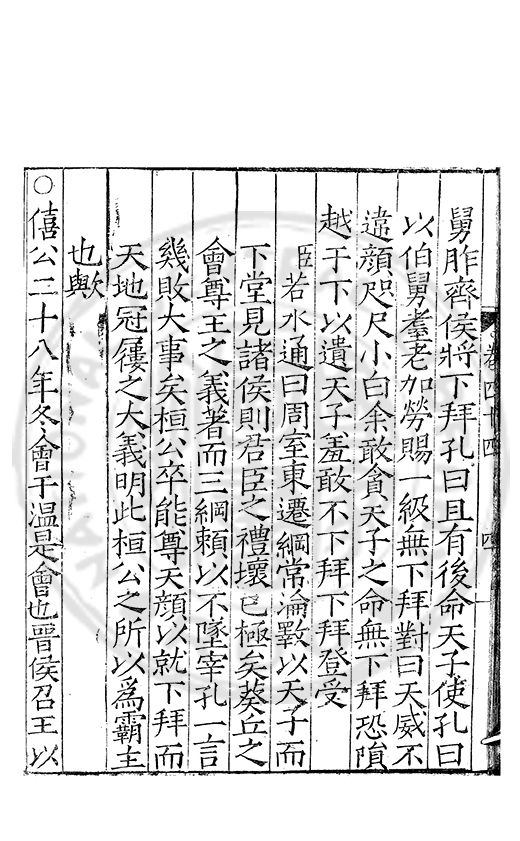 舅胙齊侯將下拜孔曰且有後命天子使孔曰
以伯舅耋老加勞賜一級無下拜對曰天威不
違顔咫尺小白余敢貪天子之命無下拜恐隕
越于下以遺天子羞敢不下拜下拜登受
臣若水通曰周室東遷綱常淪斁以天子而
下堂見諸侯則君臣之禮壞已極矣葵丘之
會尊王之義著而三綱頼以不墜宰孔一言
幾敗大事矣桓公卒能尊天顔以就下拜而
天地冠屨之大義明此桓公之所以爲霸主
也歟
○僖公二十八年冬會于温是會也晉侯召王以
卷四十四
四